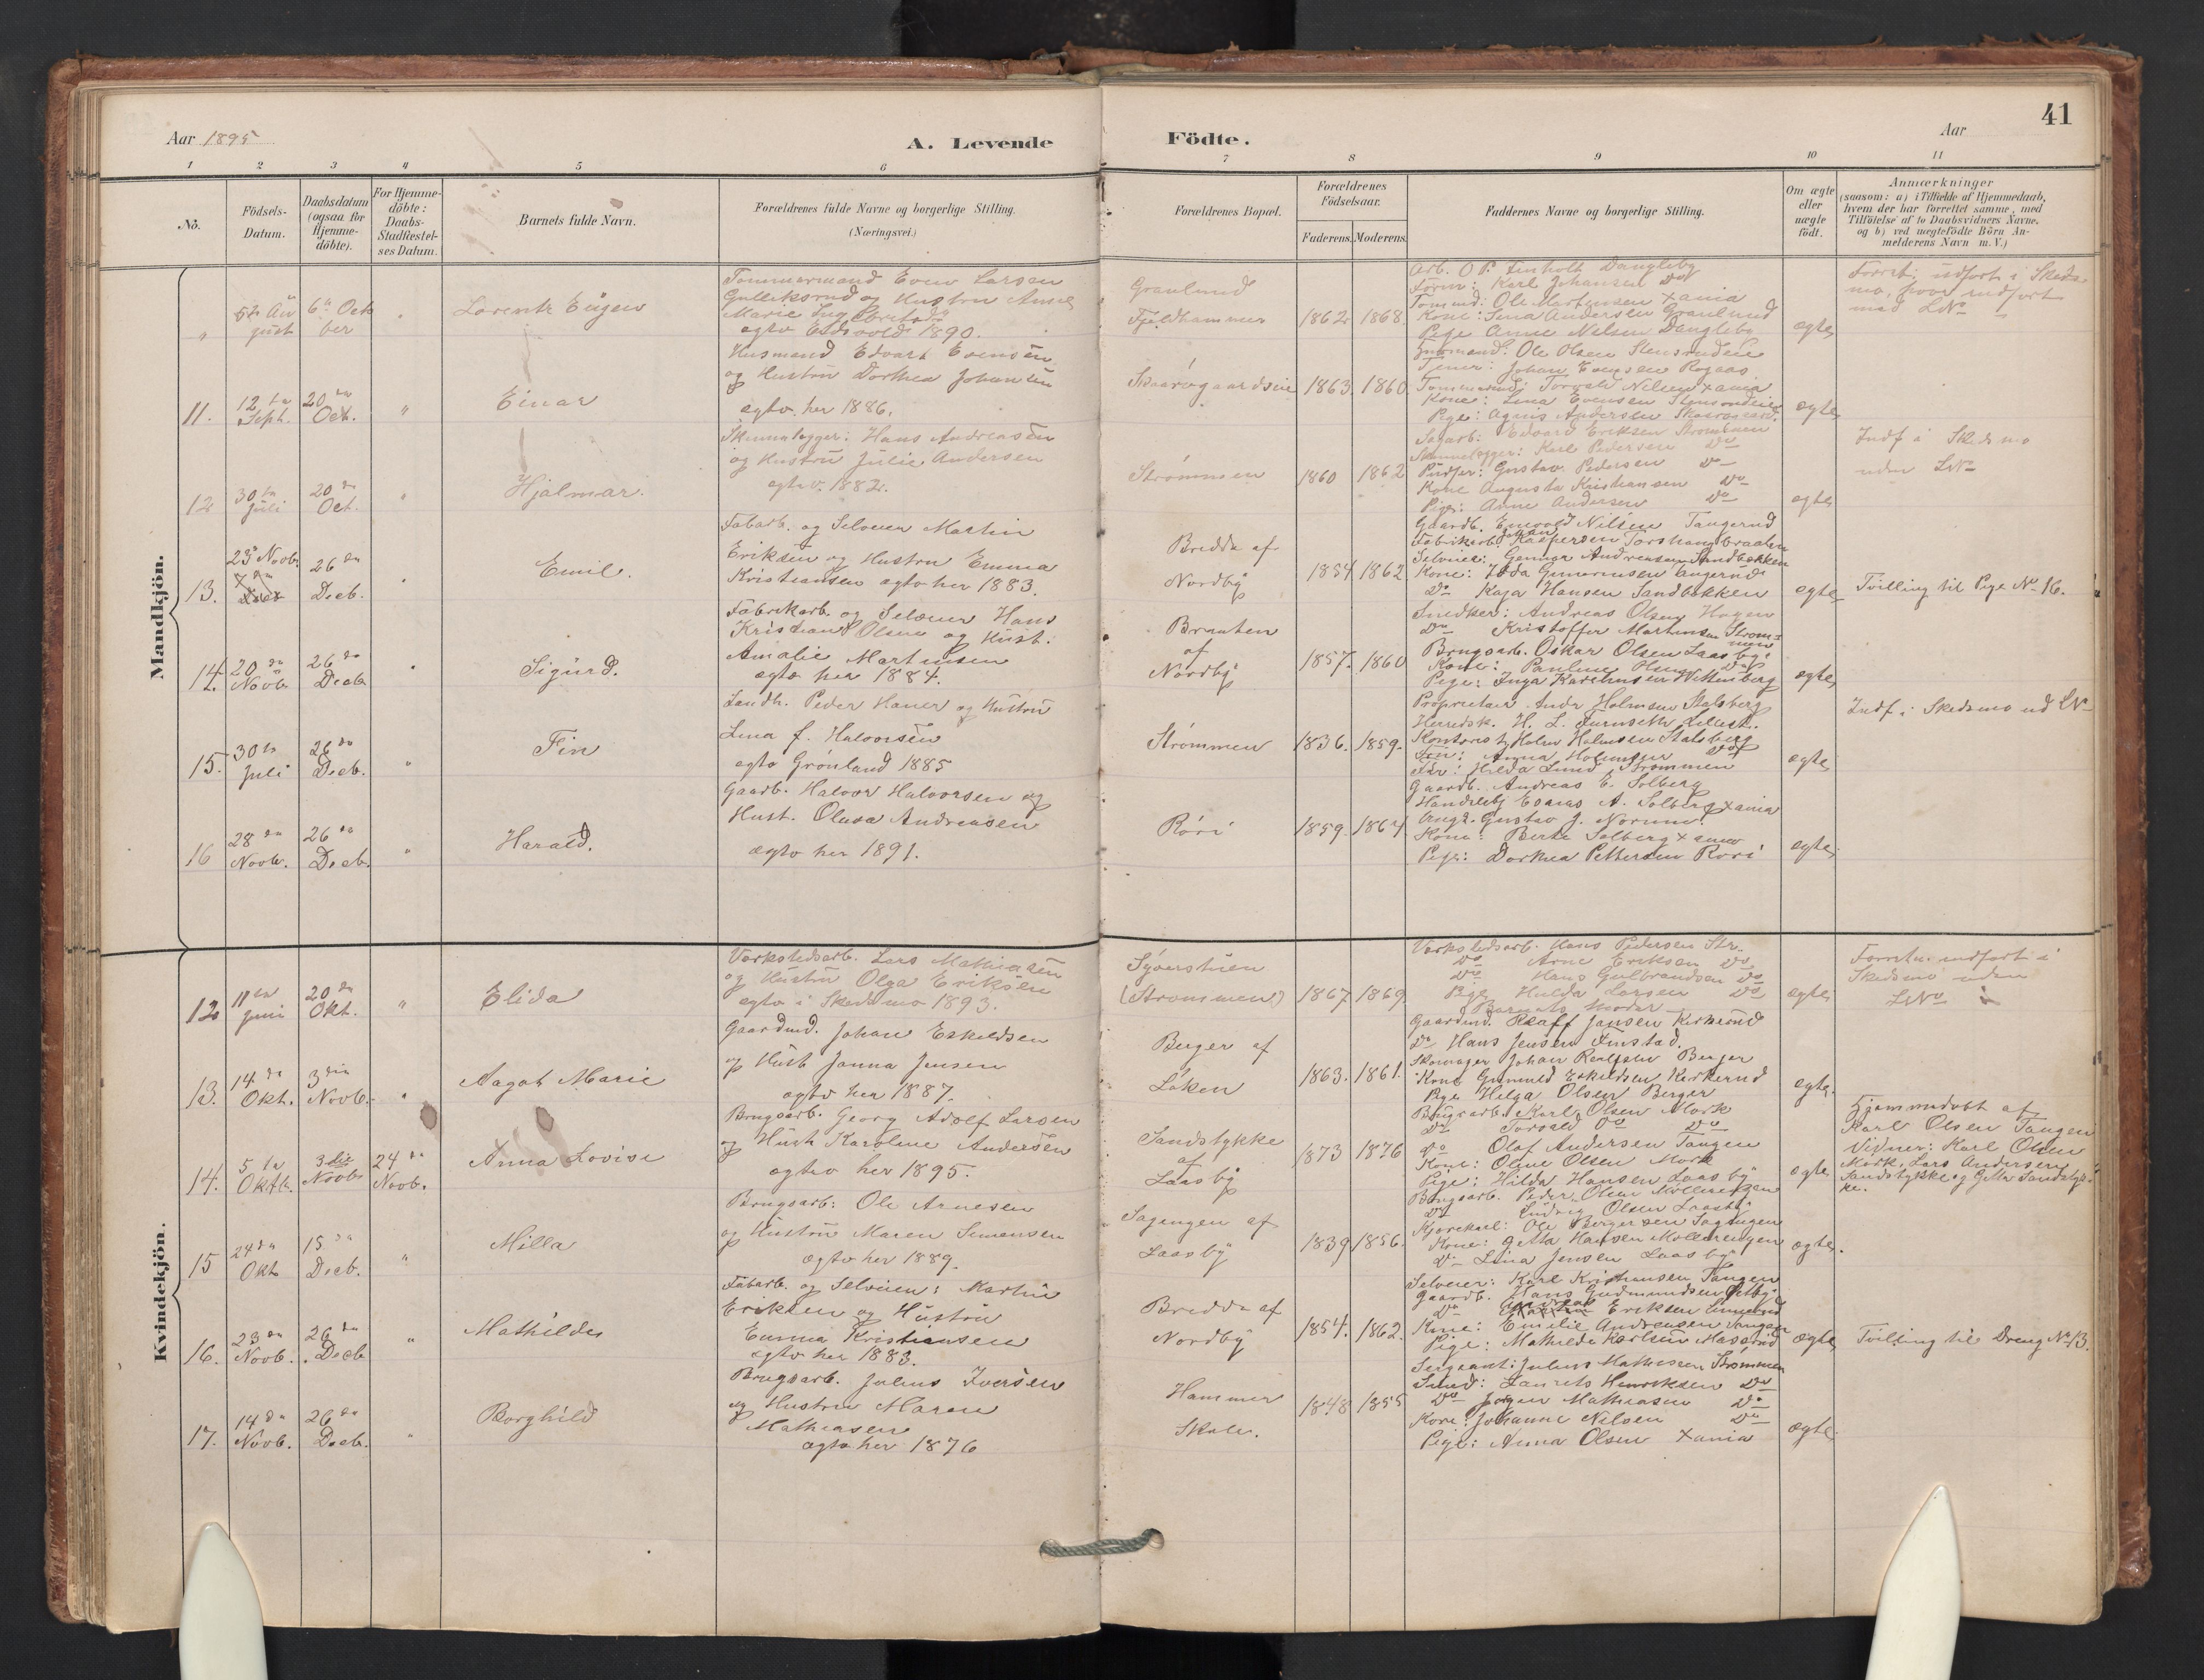 41
Aar 1895
A. Levende Födte.
Aar
1 2 3 4 5 6 7 8 9 10 11
No.
Födsels-Datum.
Daabsdatum (ogsaa for Hjemme-döbte).
For Hjemme-döbte: Daabs-Stadfæstel-ses Datum.
Barnets fulde Navn.
Forældrenes fulde Navne og borgerlige Stilling. (Næringsvei.)
Forældrenes Bopæl.
Forældrenes Födselsaar.
Faderens. Moderens.
Faddernes Navne og borgerlige Stilling.
Om ægte eller uægte födt.
Anmærkninger (saasom: a) i Tilfælde af Hjemmedaab, hvem der har forrettet samme, med Tilföielse af to Daabsvidners Navne. og b) ved uægtefödte Börn An-melderens Navn m. V.)
Mandkjön.
" 5te August
6te October
"
Lorentz Eugen
Tømmermand Even Larsen
Gulliksrud og Hustru Anne
Marie
egtv Eidsvold 1890.
Granlund
Fjeldhammer
1862 1868.
Arb. O P. Finholt Dangleby
Form: Karl Johansen Do
Tommd: Ole Martinsen Xania
Kone: Lina Andersen Granlund
Pige Anne Nilsen Dangleby
egte
Forret. indført i Skeds
mo, hvor indført
med LNo
11. 12te Sept.
20de Oct.
"
Einar
Husmand Edvart Evensen
og Hustru Dorthea Johansen
egtv. her 1886.
Skaarergaardseie
1863. 1860
Ole Olsen Stensrudeie
Tjener: Johan Evensen Rogaas
Tommermd Torvald Nilsen Xania
Kone: Lina Evensen Stensrudeie
Pige: Agnes Andersen Skaarergaard.
egte
12 30te Juli
20de Oct.
"
Hjalmar.
Skinnelægger: Hans Andreasen
og Hustru Julie Andersen
egtv. 1882.
Strømmen
1860 1862
Sagarb: Edvard Eriksen Strømmen
Skinnelægger: Karl Pedersen Do
Pudser: Gustav Pedersen Do
Kone Augusta Kristiansen Do
Pige: Anne Andersen Do
egte
Indf i Skedsmo
uden LNo
13. 23de Novb.
26de Decb.
"
Emil.
Fabarb. og Selveier Martin
Eriksen og Hustru Emma
Kristiansen egtv her 1883.
Bredde af
Nordby
1854 1862
Gaardb. Enevold Nilsen Tangerud
Fabrikarb. Johan Kaspersen Torshaugbraaten
Selveier: Gunnar Andreassen Sandbekken
Kone: Ida Gunnersen Tangerud
Do Kaja Hansen Sandbekken
egte
Tvilling til Pige No 16.
14. 20de Novb.
26de Decb.
"
Sigurd.
Fabrikarb. og Selveier Hans
Kristian Olsen og Hust.
Amalie Martinsen
egtv her 1884.
Braaten
af
Nordby
1857. 1860
Snedker: Andreas Olsen Hagen
Do Kristoffer Martinsen Strøm-
men
Brugsarb. Oskar Olsen Laasby
Kone: Pauline Olsen Do
Pige: Inga Karlsen Wittenberg
egte
15. 30te Juli
26de Decb.
"
Fin
Landh. Peder Haner og Hustru
Lina f. Halvorsen
egtv Grønland 1885
Strømmen
1836. 1859.
Proprietær Andr Holmsen Stalsberg
Herredsk. H. L. Furuseth Lillest.
Kontorist Holm Holmsen Stalsberg
Frk: Anna Holmsen Do
Frk: Hilda Lund Strømmen
egte
Indf i Skedsmo ud LNo
16 28de Novb.
26de Decb.
"
Harald.
Gaardb. Halvor Halvorsen og
Hust. Olava Andreasen
egtv her 1891.
Röri
1859. 1864
Gaardb. Andreas E. Solberg
Handelsbj Esaias A. Solberg Xania
Gustav J. Norum
Kone: Berte Solberg Xania
Pige: Dorthea Pettersen Röri
egte
Kvindekjön.
12 11te Juni
20de Okt.
"
Elida
Verkstedsarb. Lars Mathiasen
og Hustru Olga Eriksen
egtv i Skedsmo 1893.
Syverstuen
(Strømmen)
1867 1869
Verkstedsarb. Hans Pedersen Str.
Do Arne Eriksen Do
Do Hans Gulbrandsen Do
Pige Hulda Larsen Do
Barnets Moder
egte
Forretn. indført i
Skedsmo uden
LNo
13. 14de Okt.
3die Novb.
"
Aagot Marie
Gaardmd. Johan Eskildsen
og Hust Janna Jensen
egtv her 1887.
Berger af
Løken
1863. 1861.
Gaardmd. Roaff Jansen Kirkerud
Do Hans Jensen Finstad.
Skomager Johan Realfsen Berger
Kone Gunnild Eskildsen Kirkerud
Pige Helga Olsen Berger
egte.
14. 5te Oktb.
3die Novb
24de Novb.
Anna Lovise
Brugsarb. Georg Adolf Larsen
og Hustr Karoline Andersen
egtv her 1895.
Sandstykke
af
Laasby
1873 1876
Brugsarb. Karl Olsen Mork
Do Torvald Do Do
Do Olaf Andersen Tangen
Kone: Oline Olsen Mork
Pige: Hilda Hansen Laasby
egte
Hjemmedøbt af
Karl Olsen Tangen
Vidner: Karl Olsen
Mork, Lars Andersen
Sandstykke og Gitte Sandstyk-
ke.
15 24de Okt
15de Decb.
"
Milla
Brugsarb: Ole Arnesen
og Hustru Maren Simensen
egtv her 1889.
Sagengen af
Laasby
1839 1856.
Brugsarb. Peder Olsen Møllerengen
Do Ludvig Olsen Laasby
Kjørekarl: Ole Bergersen Sagengen
Kone: Gitta Hansen Møllerengen
Do Lina Jensen Laasby
egte.
16. 23de Novb.
26de Decb
"
Mathilde
Fabarb. og Selveier: Martin
Eriksen og Hustru
Emma Kristiansen
egtv her 1883.
Bredde af
Nordby
1854. 1862.
Selveier: Karl Kristiansen Tangen
Gaardb. Hans Gudmundsen
Do Eriksen
Kone: Emilie Andreasen Tangen
Pige: Mathilde Karlsen Haserud
egte
Tvilling til Dreng No 13.
17. 14de Novb.
26de Decb.
"
Borghild
Brugsarb. Julius Iversen
og Hustru Maren
Mathiasen
egtv her 1876
Hammer
Skole.
1848 1855
Sergeant: Julius Mathisen Strømmen
Smed: Laurits Henriksen Do
Do Jørgen Mathiasen Do
Kone: Johanne Nilsen Do
Pige: Anna Olsen Xania
egte.